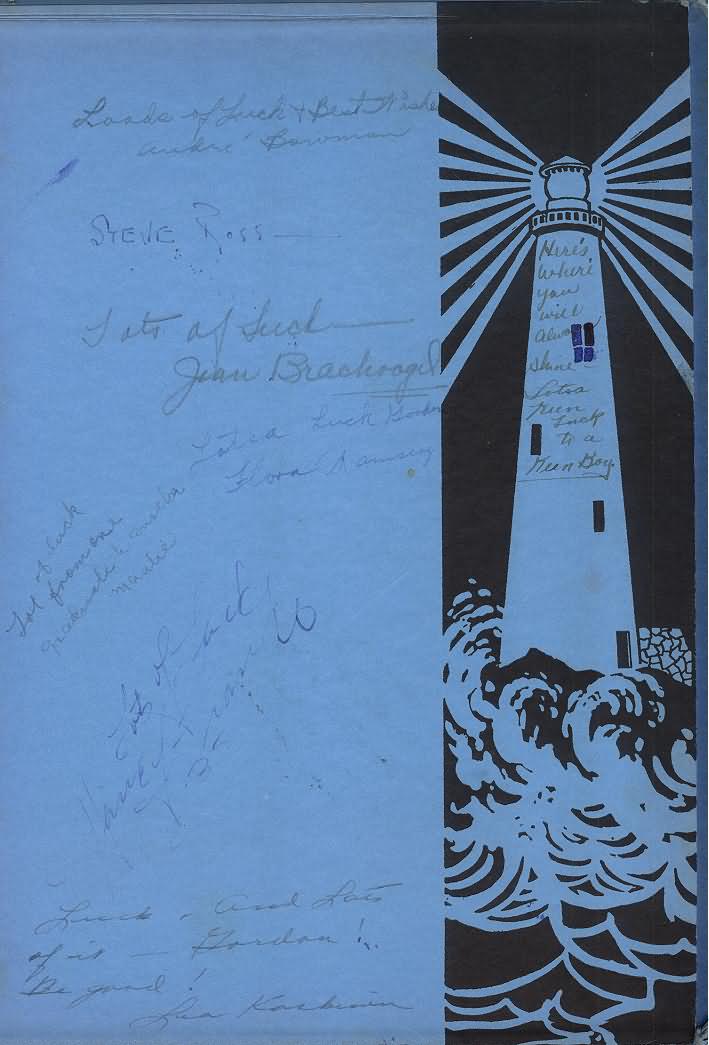 Loads of Luck & Best Wishes
André Bowman
STEVE ROSS
Lots of Luck
Jean Brachvogel
Lotsa Luck Gordon
Flora Ramsey
Lot of luck
from one
graduate to another
Lots of luck
Luck - And Lots
of it - Gordon!
Be good!
Here's
Where
you
will
always
shine -
Lotsa
Keen
Luck
to a
Keen Boy.